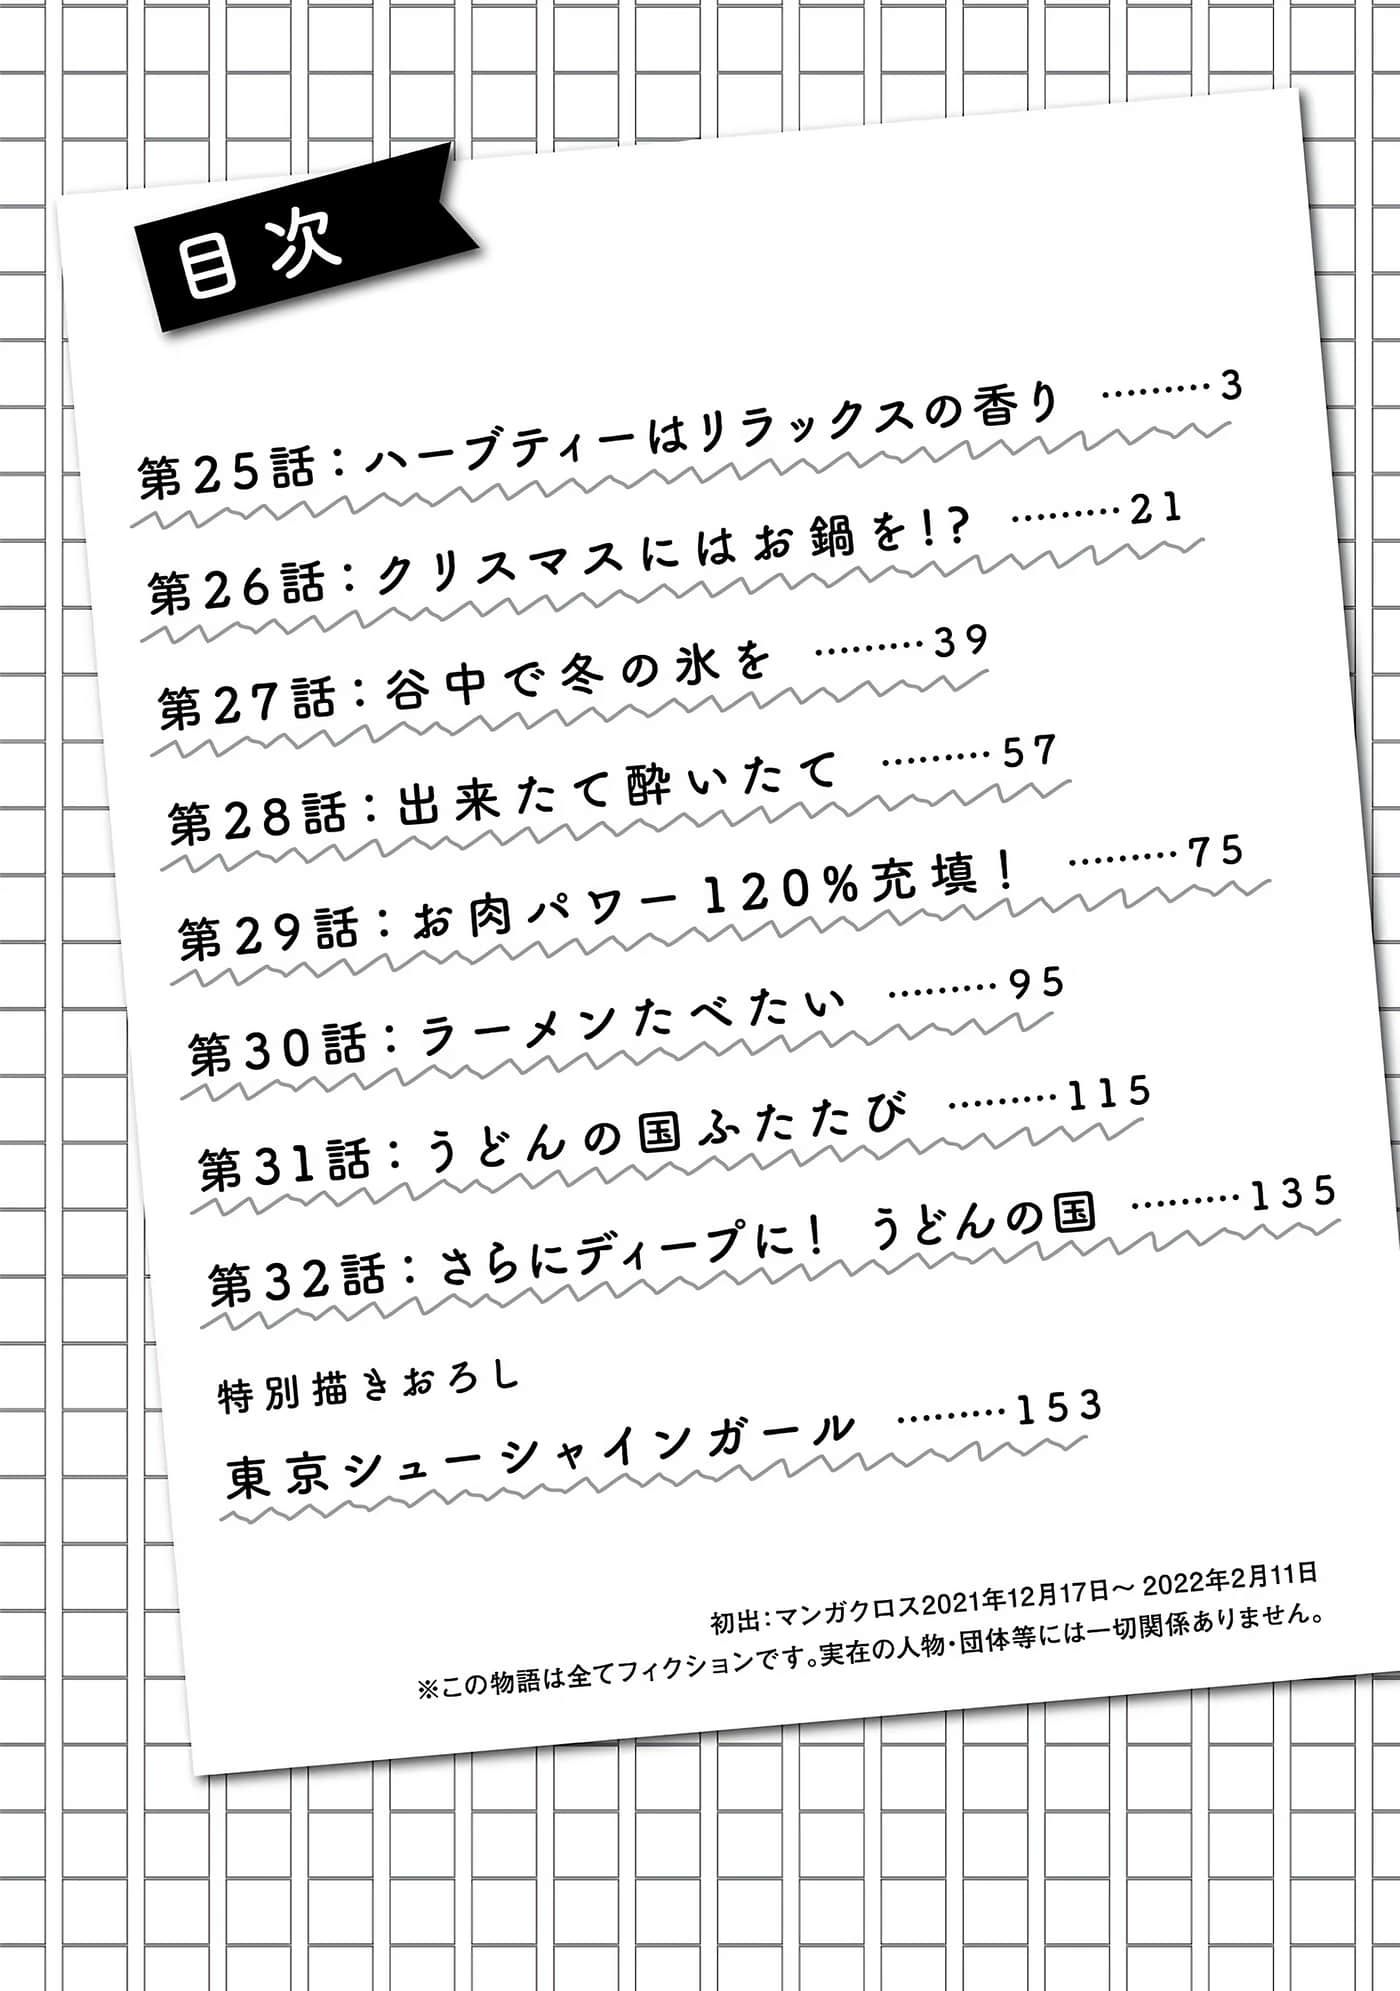 目次
第25話：ハーブティーはリラックスの香り ………3
第26話：クリスマスにはお鍋を!? ………21
第27話：谷中で冬の氷を ………39
第28話：出来たて酔いたて ………57
第29話：お肉パワー120%充填！ ………75
第30話：ラーメンたべたい ………95
第31話：うどんの国ふたたび ………115
第32話：さらにディープに！ うどんの国 ………135
特別描きおろし
東京シューシャインガール ………153
初出：マンガクロス2021年12月17日～2022年2月11日
※この物語は全てフィクションです。実在の人物・団体等には一切関係ありません。